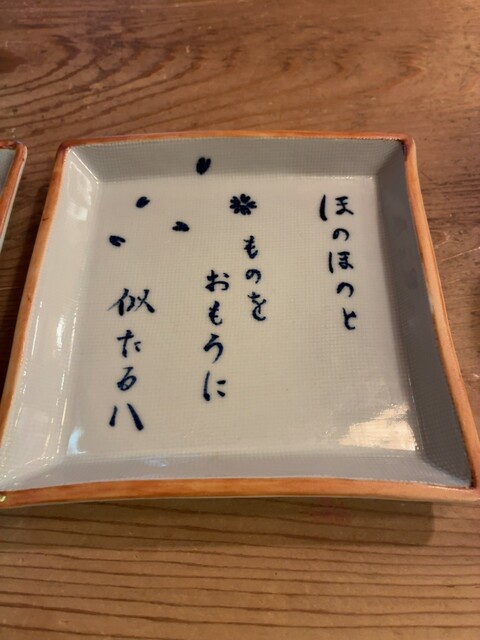 ほのほのと
ものを
おもうに
似たる八